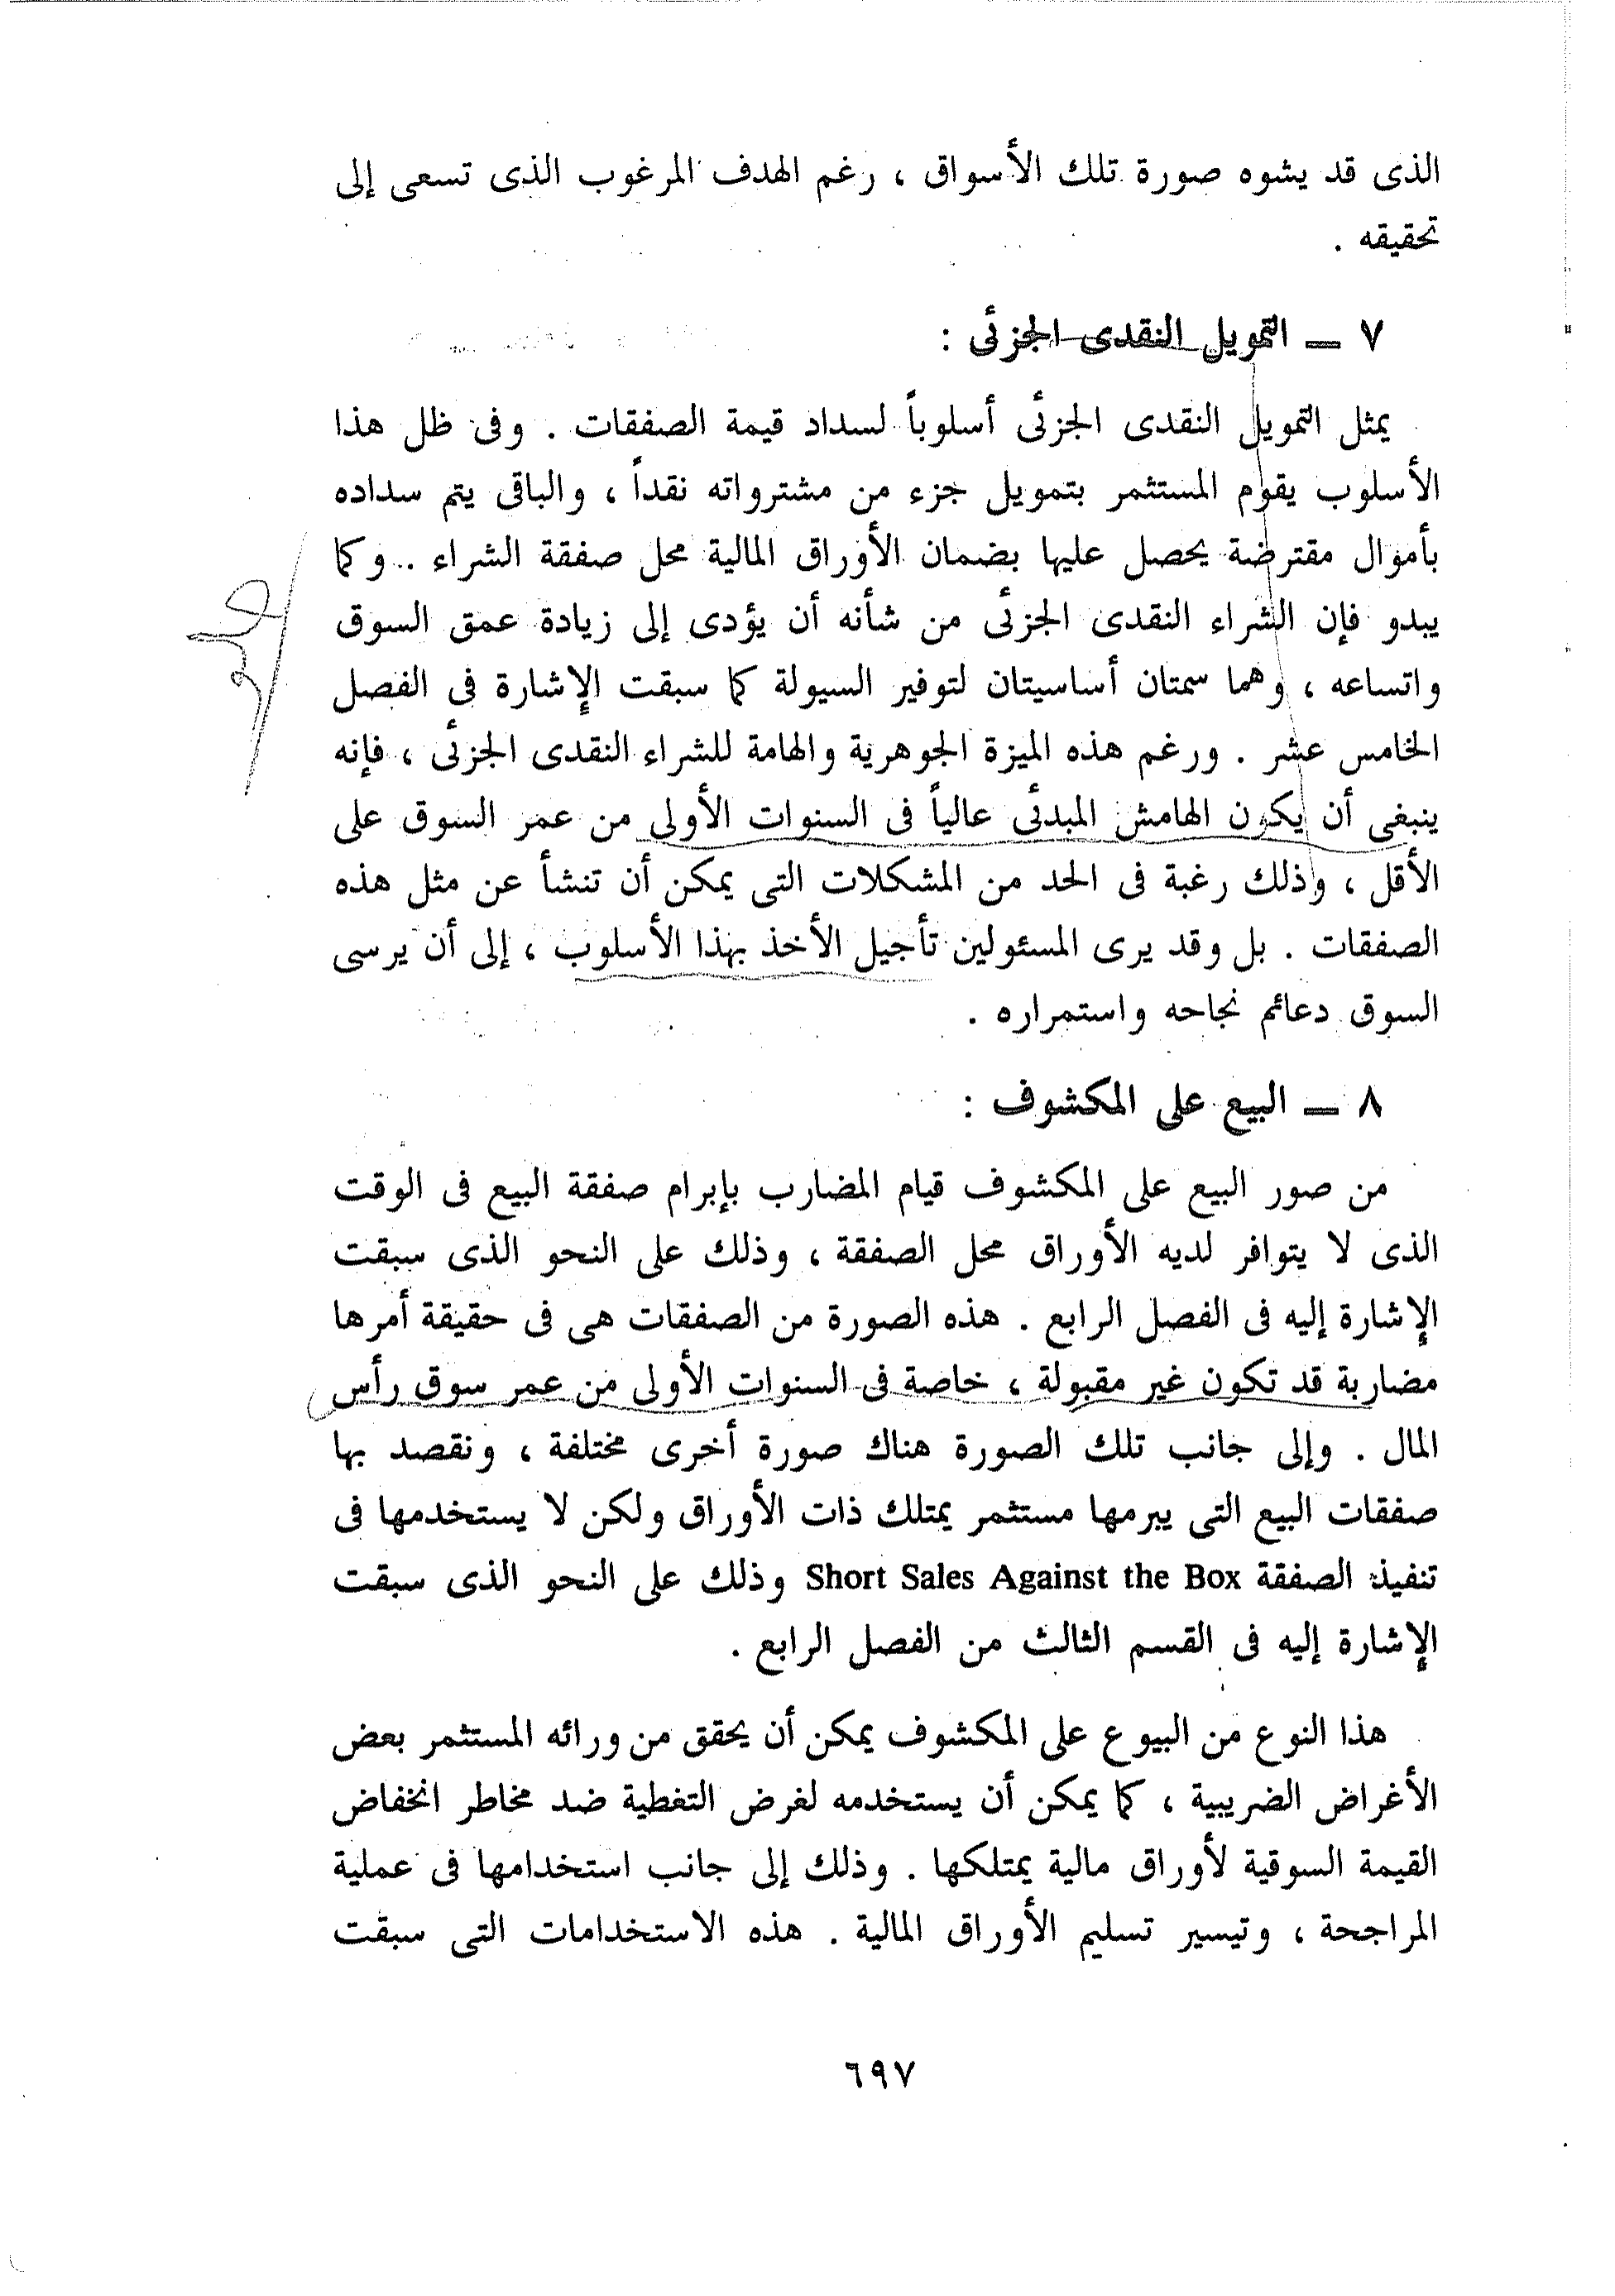 الذى قد يشوه صورة تلك الأسواق ، رغم الهدف المرغوب الذى تسعى إلى
تحقيقه .
٧ ــ التمويل النقدى الجزئى :
يمثل التمويل النقدى الجزئى أسلوباً لسداد قيمة الصفقات . وفى ظل هذا
الأسلوب يقوم المستثمر بتمويل جزء من مشترواته نقداً ، والباقى يتم سداده
بأموال مقترضة يحصل عليها بضمان الأوراق المالية محل صفقة الشراء . وكما
يبدو فإن الشراء النقدى الجزئى من شأنه أن يؤدى إلى زيادة عمق السوق
واتساعه ، وهما سمتان أساسيتان لتوفير السيولة كما سبقت الإشارة فى الفصل
الخامس عشر . ورغم هذه الميزة الجوهرية والهامة للشراء النقدى الجزئى ، فإنه
ينبغى أن يكون الهامش المبدئى عالياً فى السنوات الأولى من عمر السوق على
الأقل ، وذلك رغبة فى الحد من المشكلات التى يمكن أن تنشأ عن مثل هذه
الصفقات . بل وقد يرى المسئولين تأجيل الأخذ بهذا الأسلوب ، إلى أن يرسى
السوق دعائم نجاحه واستمراره .
٨ ــ البيع على المكشوف :
من صور البيع على المكشوف قيام المضارب بإبرام صفقة البيع فى الوقت
الذى لا يتوافر لديه الأوراق محل الصفقة ، وذلك على النحو الذى سبقت
الإشارة إليه فى الفصل الرابع . هذه الصورة من الصفقات هى فى حقيقة أمرها
مضاربة قد تكون غير مقبولة ، خاصة فى السنوات الأولى من عمر سوق رأس
المال . وإلى جانب تلك الصورة هناك صورة أخرى مختلفة ، ونقصد بها
صفقات البيع التى يبرمها مستثمر يمتلك ذات الأوراق ولكن لا يستخدمها فى
تنفيذ الصفقة Short Sales Against the Box وذلك على النحو الذى سبقت
الإشارة إليه فى القسم الثالث من الفصل الرابع .
هذا النوع من البيوع على المكشوف يمكن أن يحقق من ورائه المستثمر بعض
الأغراض الضريبية ، كما يمكن أن يستخدمه لغرض التغطية ضد مخاطر انخفاض
القيمة السوقية لأوراق مالية يمتلكها . وذلك إلى جانب استخدامها فى عملية
المراجحة ، وتيسير تسليم الأوراق المالية . هذه الاستخدامات التى سبقت
٦٩٧